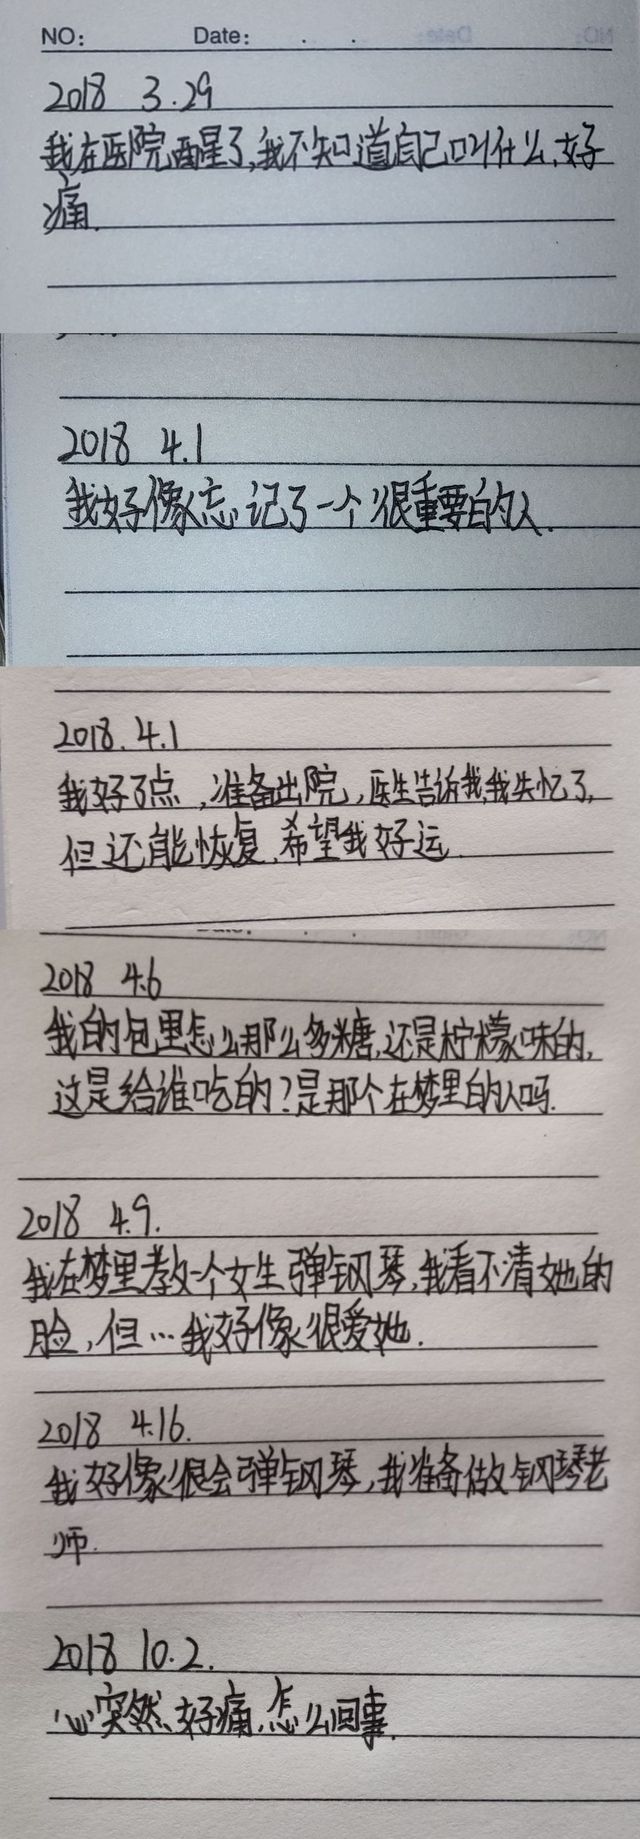 NO: Date: . .
2018 3.29
我在医院醒了,我不知道自己叫什么,好
痛.
2018 4.1
我好像忘记了一个很重要的人.
2018.4.1
我好了点,准备出院,医生告诉我,我失忆了,
但还能恢复,希望我好运.
2018 4.6
我的包里怎么那么多糖,还是柠檬味的,
这是给谁吃的?是那个在梦里的人吗.
2018 4.9.
我在梦里教一个女生弹钢琴,我看不清她的
脸,但…我好像很爱她.
2018 4.16.
我好像很会弹钢琴,我准备做钢琴老
师.
2018 10.2.
心突然好痛,怎么回事.